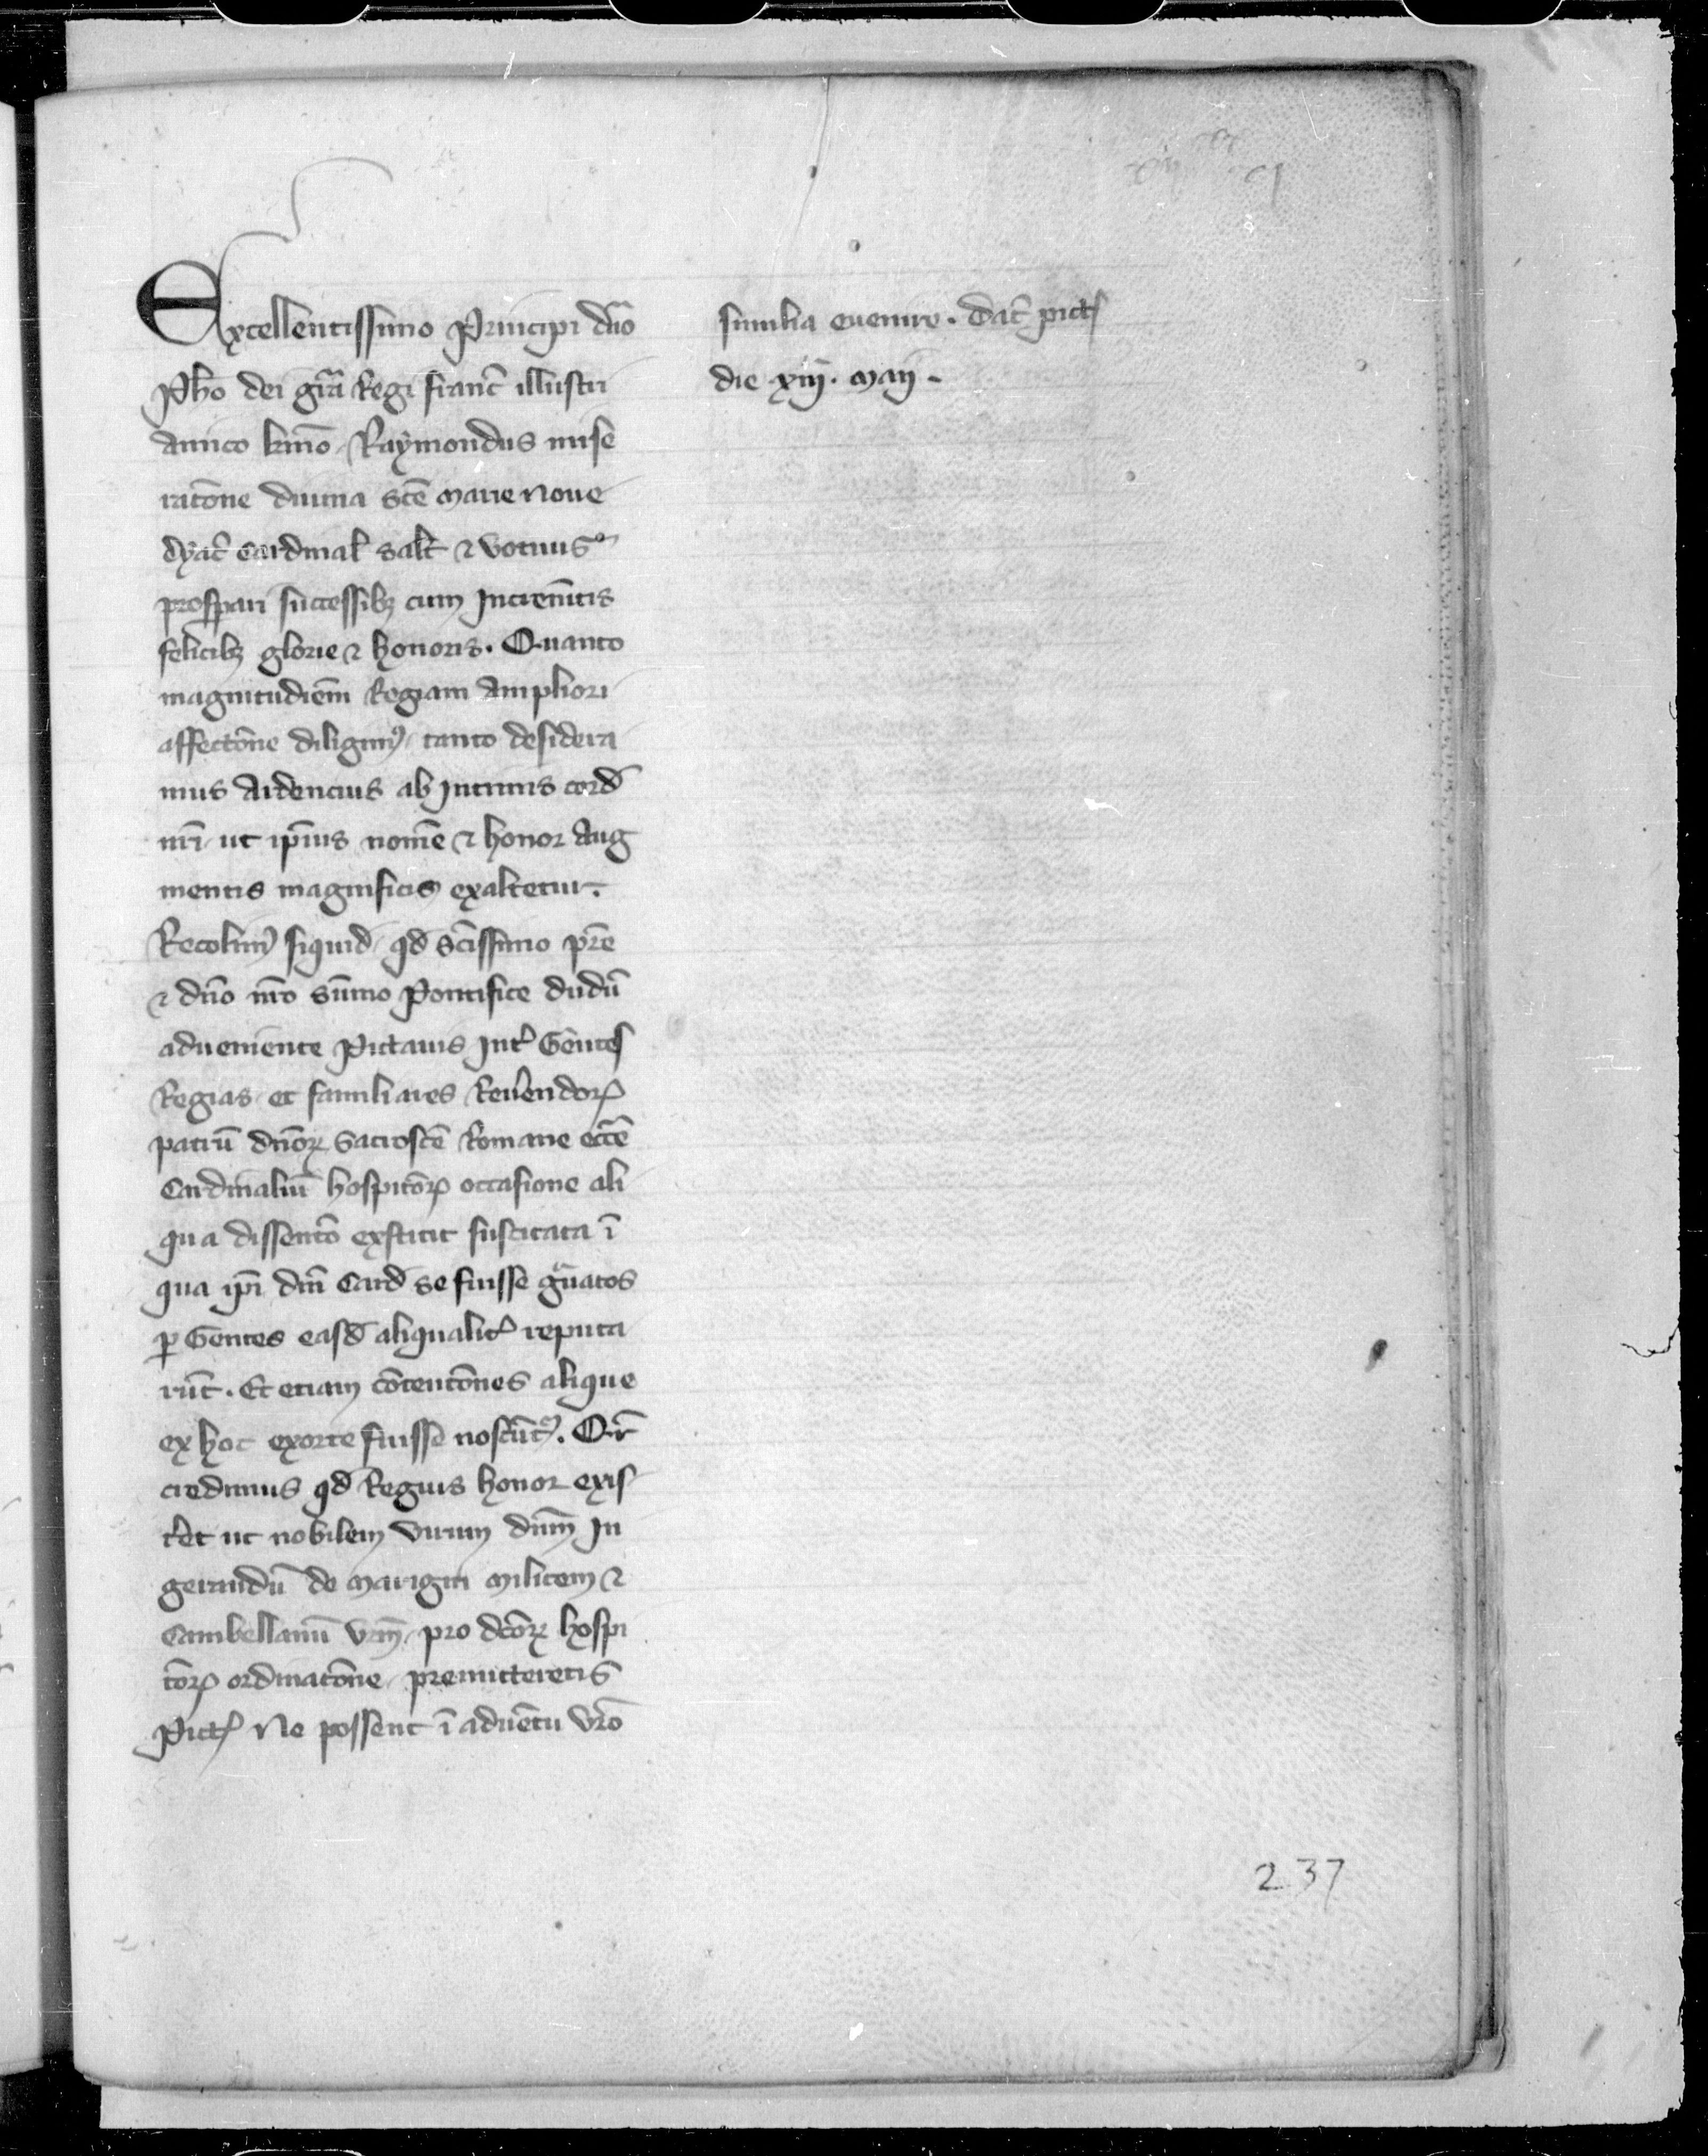 Excellentissimo Principi dño
Ph̃o dei gr̃a Regi franc̃ illustri
Amico kr̃mo Raymondus mise
rac̃one diuina sc̃e marie noue
dyac̃ cardinał sałt ⁊ votiuis
prosperari successibꝫ cum Increm̃tis
felicibꝫ glorie ⁊ honoris. Quanto
magnitudiem̃ Regiam Ampliori
affectõne diligimꝰ tanto desidera
mus Ardencius ab Intimis cord̃
nr̃i ut ip̃ius nom̃e ⁊ honor Aug
mentis magnificis exaltetur.
Recolimꝰ siquid̃ qd̃ sc̃issimo pr̃e
⁊ dño nr̃o sũmo Pontifice dudũ
adueniente Pictauis Int̃ Gentes
Regias et familiares Reu̾endoꝝ
patrũ dñoꝝ Sacrosc̃e Romane ecc̃e
Cardinaliũ hospitõꝝ occasione ali
qua dissentõ exstitit suscitata ĩ
qua ip̃i dñi Card̃ se fuisse gͣuatos
ꝑ Gentes easd̃ aliqualit̾ reputa
rũt. Et etiam cõtentõnes alique
ex hoc exorte fuisse noscũt᷑. Qr̃
credimus qd̃ Regius honor exis
t̾et ut nobilem virum dñm In
gerrandũ de marigni militem ⁊
Cambellanũ vr̃m pro dc̃oꝝ hospi
tõꝝ ordinatõne premitteretis
Pict̾ Ne possent ĩ aduẽtu vr̃o
similia euenire. Dat̃ pict̾
die .xiij. maij.
237